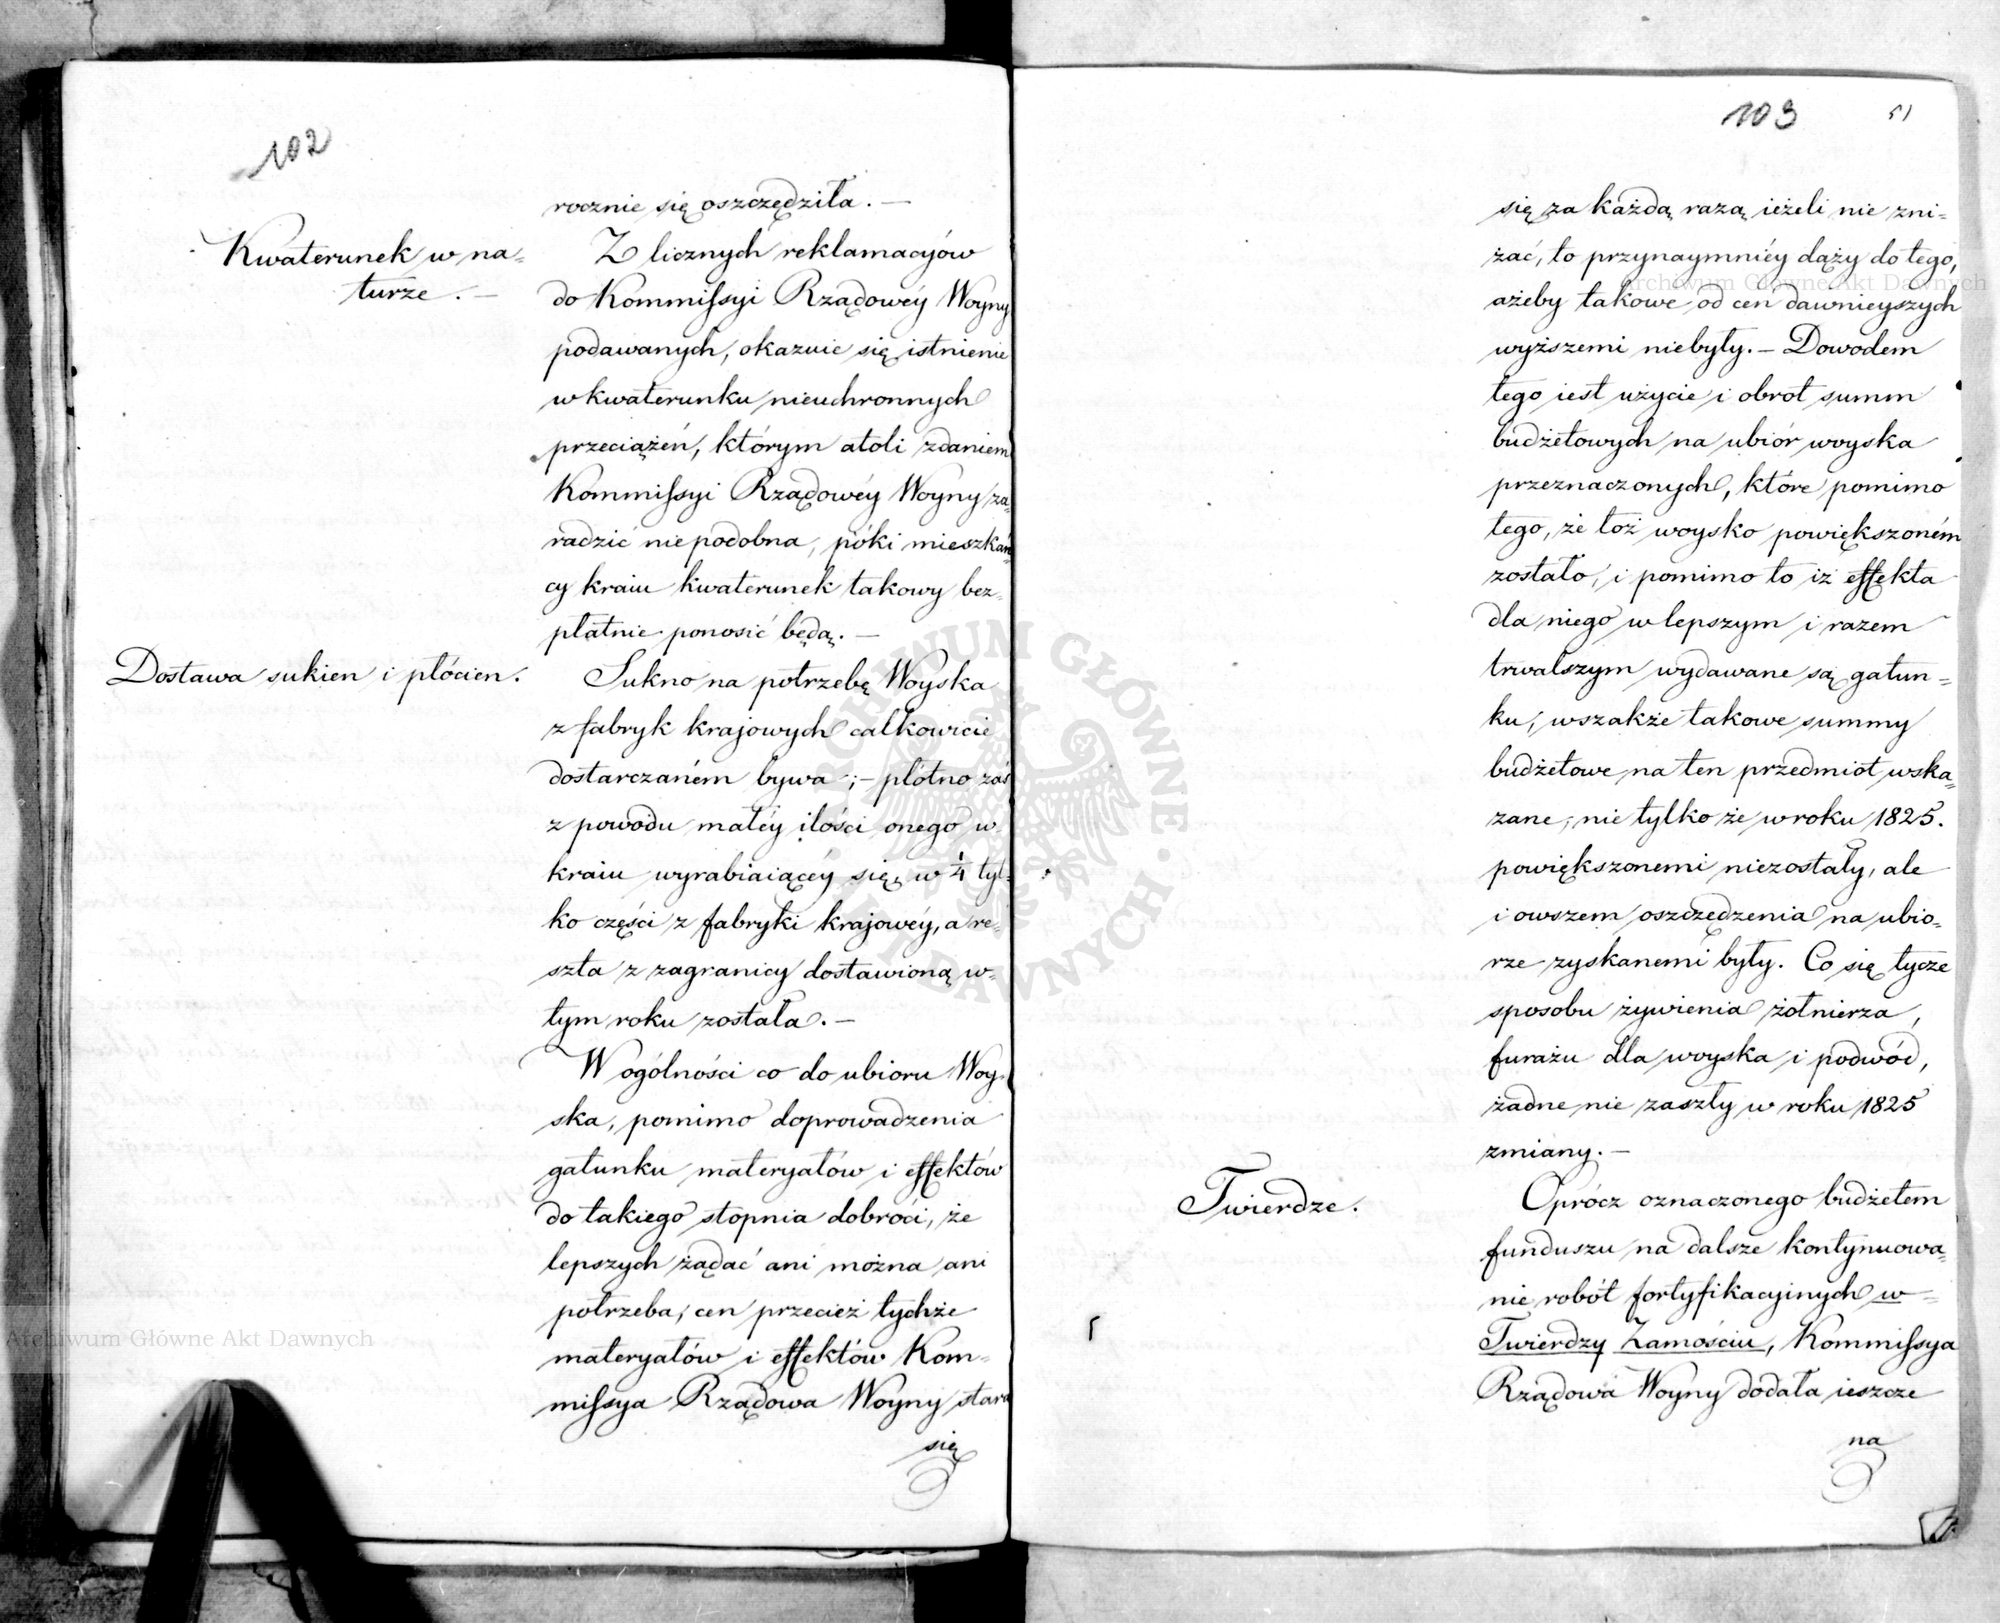 102
rocznie się oszczędziła. —
Kwaterunek w na=
turze. —
Z licznych reklamacyów
do Kommissyi Rządowéy Woyny
podawanych, okazuie się istnienie
w kwaterunku nieuchronnych
przeciążeń, którym atoli zdaniem
Kommissyi Rządowéy Woyny za=
radzić nie podobna, póki mieszkań
cy kraiu kwaterunek takowy bez=
płatnie ponosić będą. —
Dostawa sukien i płócien.
Sukno na potrzebę Woyska
z fabryk krajowych całkowicie
dostarczaném bywa; — płótno zaś
z powodu małéy ilości onego w=
kraiu wyrabiaiącéy się, w ¼ tyl=
ko części z fabryki krajowéy, a re=
szta z zagranicy dostawioną w=
tym roku została. —
W ogólności co do ubioru Woy=
ska, pomimo doprowadzenia
gatunku materyałów i effektów
do takiego stopnia dobroci, że
lepszych żądać ani można ani
potrzeba, cen przecież tychże
materyałów i effektów Kom=
missya Rządowa Woyny stara
się
103
51
się za każdą razą ieżeli nie zni=
żać, to przynaymniéy dąży do tego,
ażeby takowe od cen dawnieyszych
wyższemi niebyły. — Dowodem
tego iest użycie i obrot summ
budżetowych na ubiór woyska
przeznaczonych, które pomimo
tego, że toż woysko powiększoném
zostało, i pomimo to iż effekta
dla niego w lepszym i razem
trwalszym wydawane są gatun=
ku, wszakże takowe summy
budżetowe na ten przedmiot wska=
zane, nie tylko że w roku 1825.
powiększonemi niezostały, ale
i owszem oszczędzenia na ubio=
rze zyskanemi były. Co się tycze
sposobu żywienia żołnierza,
furażu dla woyska i podwód,
żadne nie zaszły w roku 1825
zmiany. —
Twierdze.
Oprócz oznaczonego budżetem
funduszu na dalsze kontynuowa=
nie robót fortyfikacyinych w=
Twierdzy Zamościu, Kommissya
Rządowa Woyny dodała ieszcze
na
Archiwum Główne Akt Dawnych
Archiwum Główne Akt Dawnych
ARCHIWUM GŁÓWNE · AKT DAWNYCH ·